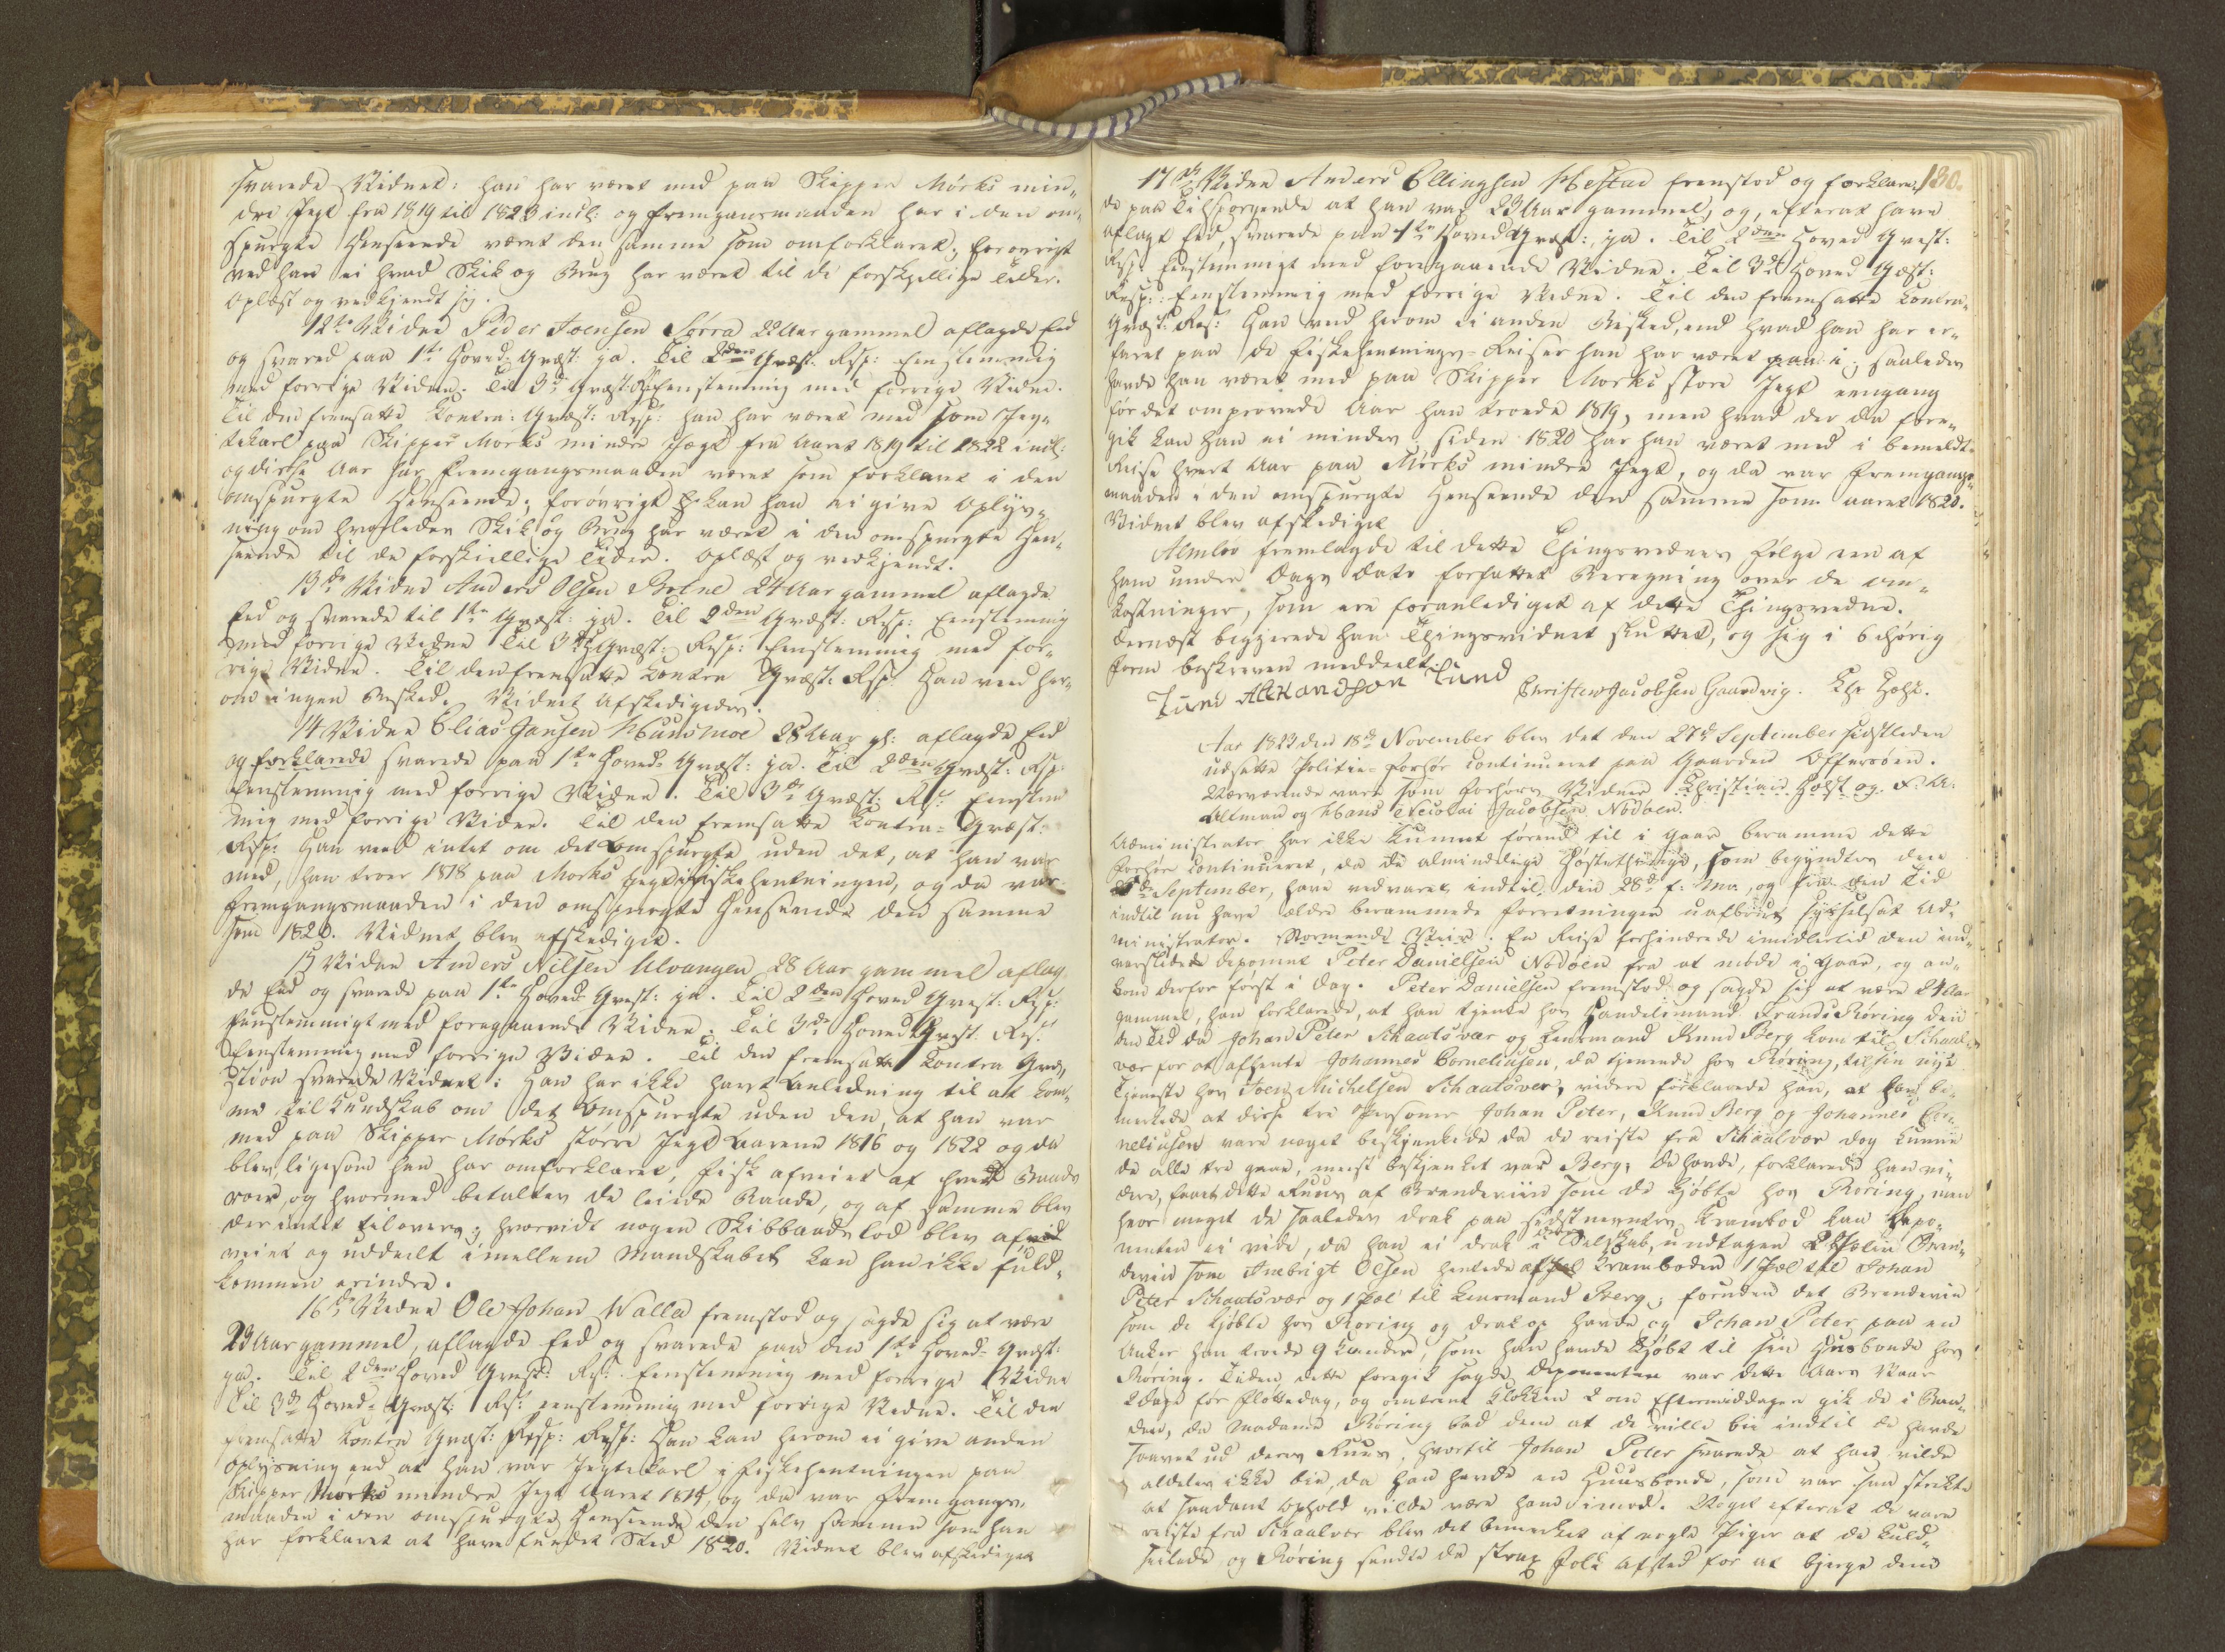 svarede Vidnet: han har været med paa Skipper Mørks min-
dre Jegt fra 1819 til 1823 incl: og fremgansmaaden har i den om-
spurgte Henseende været den samme som omforklaret; forøvrigt
ved han ei hvad Skik og Brug har været til de forskjellige Tider.
Oplæst og vedkjendt sig.
12te Vidne Peder Joensen Sørra 22 Aar gammel aflagde Eed
og svared paa 1te Hoved-Qvæst: ja. Til 2den Qvæst. Resp: Eenstemmig
med forrige Vidne. Til 3die Qvæst: Eenstemmig med forrige Vidne.
Til den fremsatte Kontra-Qvæst: Resp: han har været med som Jeg-
tekarl paa Skipper Mørks mindre Jægt fra Aaret 1819 til 1822 incl:
og disse Aar har Fremgangsmaaden været som forklaret i den
omspurgte Henseende; forøvrigt kan han ei give Oplys-
ning om hvorledes Skik og Brug har været i den omspurgte Hen-
seende til de forskiellige Tider. Oplæst og vedkjendt.
13de Vidne Anders Olsen Botne 24 Aar gammel aflagde
Eed og svarede til 1te Qvæst: ja. Til 2den Qvæst: Resp: Eenstemmig
med forrige Vidne Til 3die Qvæst: Resp: Eenstemmig med for-
rige Vidne. Til den fremsatte Kontra Qvæst: Resp: Han veed her-
om ingen Besked. Vidnet Afskedigedes.
14 Vidne Elias Jansen Huusmoe 28 Aar gl: aflagde Eed
og forklarede svarede paa 1te Hoved-Qvæst: ja. Til 2den Qvæst: Resp:
Eenstemmig med forrige Vidne. Til 3die Qvæst: Rs: Eenstem
mig med forrige Vidne. Til den fremsatte Kontra-Qvæst:
Resp: Han veed intet om det Omspurgte uden det, at han var
med, han troer 1818 paa Mørks Jegt i Fiskehentningen, og da var
fremgangsmaaden i den omspurgte Henseende den samme
som 1820. Vidnet blev afskediget.
15 Vidne Anders Nilsen Ulvangen 28 Aar gammel aflag
de Eed og svarede paa 1te Hoved-Qvæst: ja. Til 2den Hoved Qvæst: Resp:
Eenstemmigt med foregaaende Vidne. Til 3die Hoved Qvæst. Rs:
Eenstemmig med forrige Vidne. Til den fremsatte Kontra Qvæ-
stion svarede Vidnet: Han har ikke havt Anledning til at kom-
me til Kundskab om det Omspurgte uden den, at han var
med paa Skipper Mørks større Jegt Aarene 1816 og 1822 og da
blev ligesom han har omforklaret, Fisk afveiet af hver Mands
vare, og hvormed betaltes de leiede Baade, og af samme blev
der intet tilovers; hvorvidt nogen Skibbaadslod blev af
veiet og uddeelt imellem Mandskabet kan han ikke fuld-
kommen erindre.
16de Vidne Ole Johan Walla fremstod og sagde sig at være
23 Aar gammel, aflagde Eed og svarede paa den 1te Hoved-Qvæst:
ja. Til 2den Hoved Qvæst: Rs: Eenstemmig med forrige Vidne
Til 3die Hoved-Qvæst: Rs: eenstemmig med forrige Vidne. Til den
fremsatte Kontra Qvæst: Resp: Resp: Han kan herom ei give anden
Oplysning end at han var Jegtekarl i Fiskehentningen paa
Skipper Mørks mindre Jegt Aaret 1819, og da var fremgangs-
maaden i den omspurgte Henseende den selv samme som han
har forklaret at have fundet Sted 1820. Vidnet blev afskediget
130.
17de Vidne Anders Ellingsen Hestad fremstod og forklare-
de paa Tilspørgende at han var 23 Aar gammel, og, efterat have
aflagt Eed, svarede paa 1te Hoved Qvæst: ja. Til 2den Hoved Qvæst:
Rsp: Eenstemmigt med foregaaende Vidne. Til 3die Hoved Qvæst:
Resp: Eenstemmig med forrige Vidne. Til den fremsatte Kontra-
Qvæst: Res: Han veed herom ei anden Besked, end hvad han har er-
faret paa de Fiskehentnings-Reiser han har været paa i; saaledes
havde han været med paa Skipper Mørks store Jegt eengang
før det omprovede Aar han troede 1819, men hvad der da fore-
gik kan han ei mindes. Siden 1820 har han været med i bemeldte
Reise hvert Aar paa Mørks mindre Jegt, og da var Fremgangs-
maaden i den omspurgte Henseende den samme som aaret 1820.
Vidnet blev afskediget
Almløv fremlagde til dette Thingsvidnes Følge een af
ham under Dags Dato forfattet Beregning over de Om-
kostninger, som ere foranlediget af dette Thingsvidne.
Dernæst begjerede han Thingsvidnet sluttet, og sig i behørig
Form beskreven meddeelt.
Tund Christen Jacobsen Gaardvig. Chr Holst.
Aar 1823 den 18de November blev det den 27de September sidstleden
udsatte Politie-Forhør continueret paa Gaarden Offersøen.
Nærværende vare som Forhørs Vidner Christian Holst og F. A.
Altman og Hans Nicolai Jacobsen Nødøen.
Administrator har ikke kunnet førend til i Gaar berammet dette
Forhør continueret, da de almindelige Høstethinge, som begyndtes den
September, have vedvaret indtil den 28de f: M:, og fra den Tid
indtil nu have ældre berammede Forretninger uafbrudt sysselsat Ad-
ministrator. En Reise forhindrede imidlertid den ind-
varslede Deponent Peter Danielsen Nødøen fra at møde i Gaar, og an-
kom derfor først i Dag. Peter Danielsen fremstod og sagde sig at være 24 Aar
gammel, han forklarede, at han tjente hos Handelsmand Røring den
den Tid da Johan Peter Schaatsvær og Leensmand Knud Berg kom til Schaal-
vær for at afhente Johannes Corneliusen, da tjenende hos Røring, til sin nye
Tjeneste hos Joen Michelsen Schaatsvær, videre forklarede han, at han be-
merkede at disse tre Personer Johan Peter, Knud Berg og Johannes Cor-
neliusen vare noget beskjenkede da de reiste fra Schaalvær dog kunne
de alle tre gaae, meest beskjenket var Berg; de havde, forklarede han vi-
dere, faaet dette Ruus af Brændeviin som de kjøbte hos Røring, men
hvor meget de saaledes drak paa sidstnevntes Krambod kan Depo-
nenten ei vide, da han ei drak i Selskab, undtagen 2 Pæle Bren-
deviin som Anebrigt Olsen hentede af Kramboden 1 Pæl til Johan
Peter Schaatsvær og 1 Pæl til Leensmand Berg; foruden det Brændeviin
som de kjøbte hos Røring og drak op havde og Johan Peter paa en
Anker han troede 9 Kander, som han havde kjøbt til sin Huusbonde hos
Røring. Tiden dette foregik sagde Deponenten var dette Aars Vaar
2 Dage før Flottedag, og omtrent Klokken 2 om Eftermiddagen gik de i Baa-
den, da Madame Røring bad dem at de ville bie indtil de havde
sovet ud deres Ruus, hvortil Johan Peter svarede at han vilde
aldeles ikke bie, da han havde en Huusbonde, som var saa strikte
at saadant Ophold vilde være ham imod. Noget efterat de vare
reiste fra Schaalvær blev det bemerket af nogle Piger at de kuld-
seilede og Røring sendte da strax Folk afsted for at bjerge dem